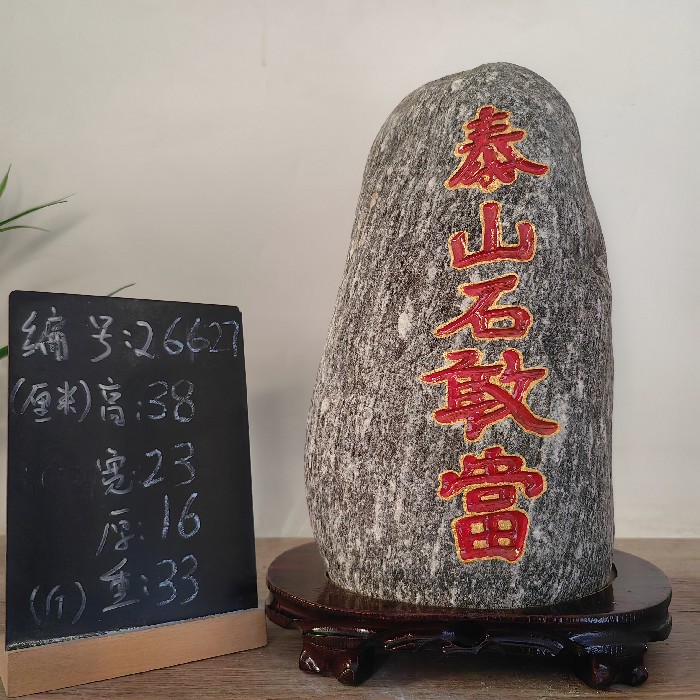 编号:26627
(厘米)高:38
宽:23
厚:16
(斤)重:33
泰山石敢當